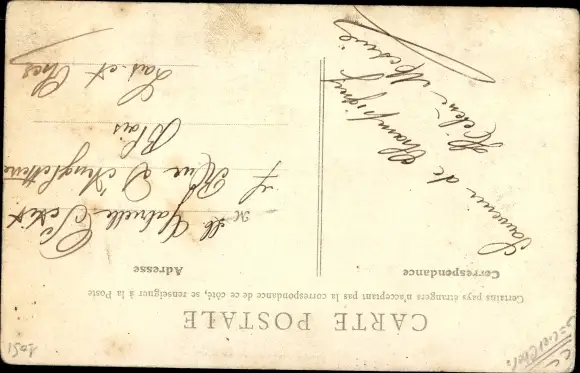 CARTE POSTALE
Certains pays étrangers n'acceptant pas la correspondance de ce côté, se renseigner à la Poste
Correspondance
Souvenir de
Champigny
Hélène
Adresse
M
Gabrielle Petit
7 Rue D'Angleterre
Blois